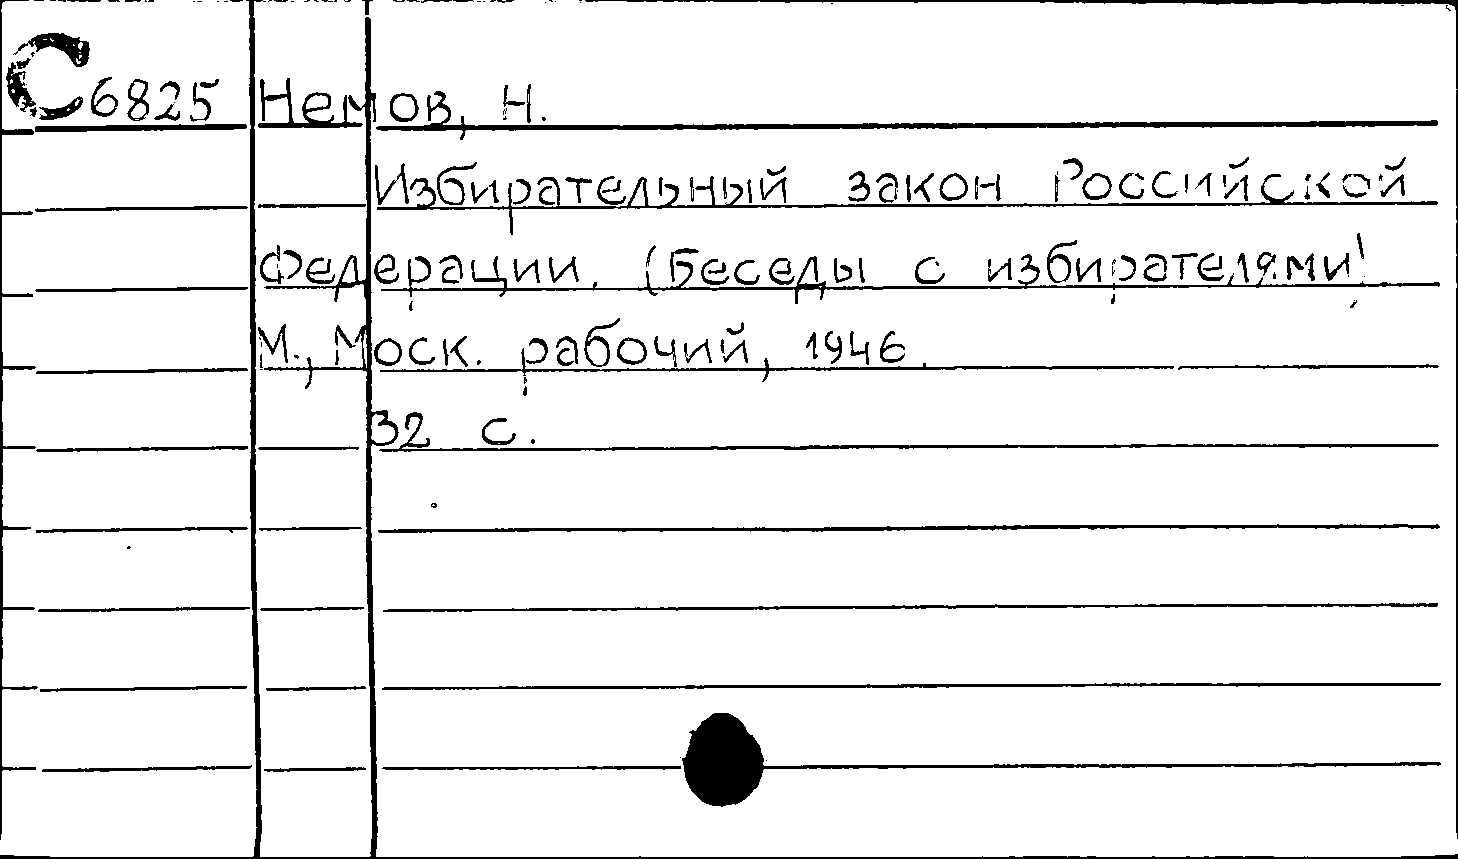 С6825 Немов, Н.
Избирательный закон Российской
Федерации. (Беседы с избирателями)
М., Моск. рабочий, 1946.
32 с.